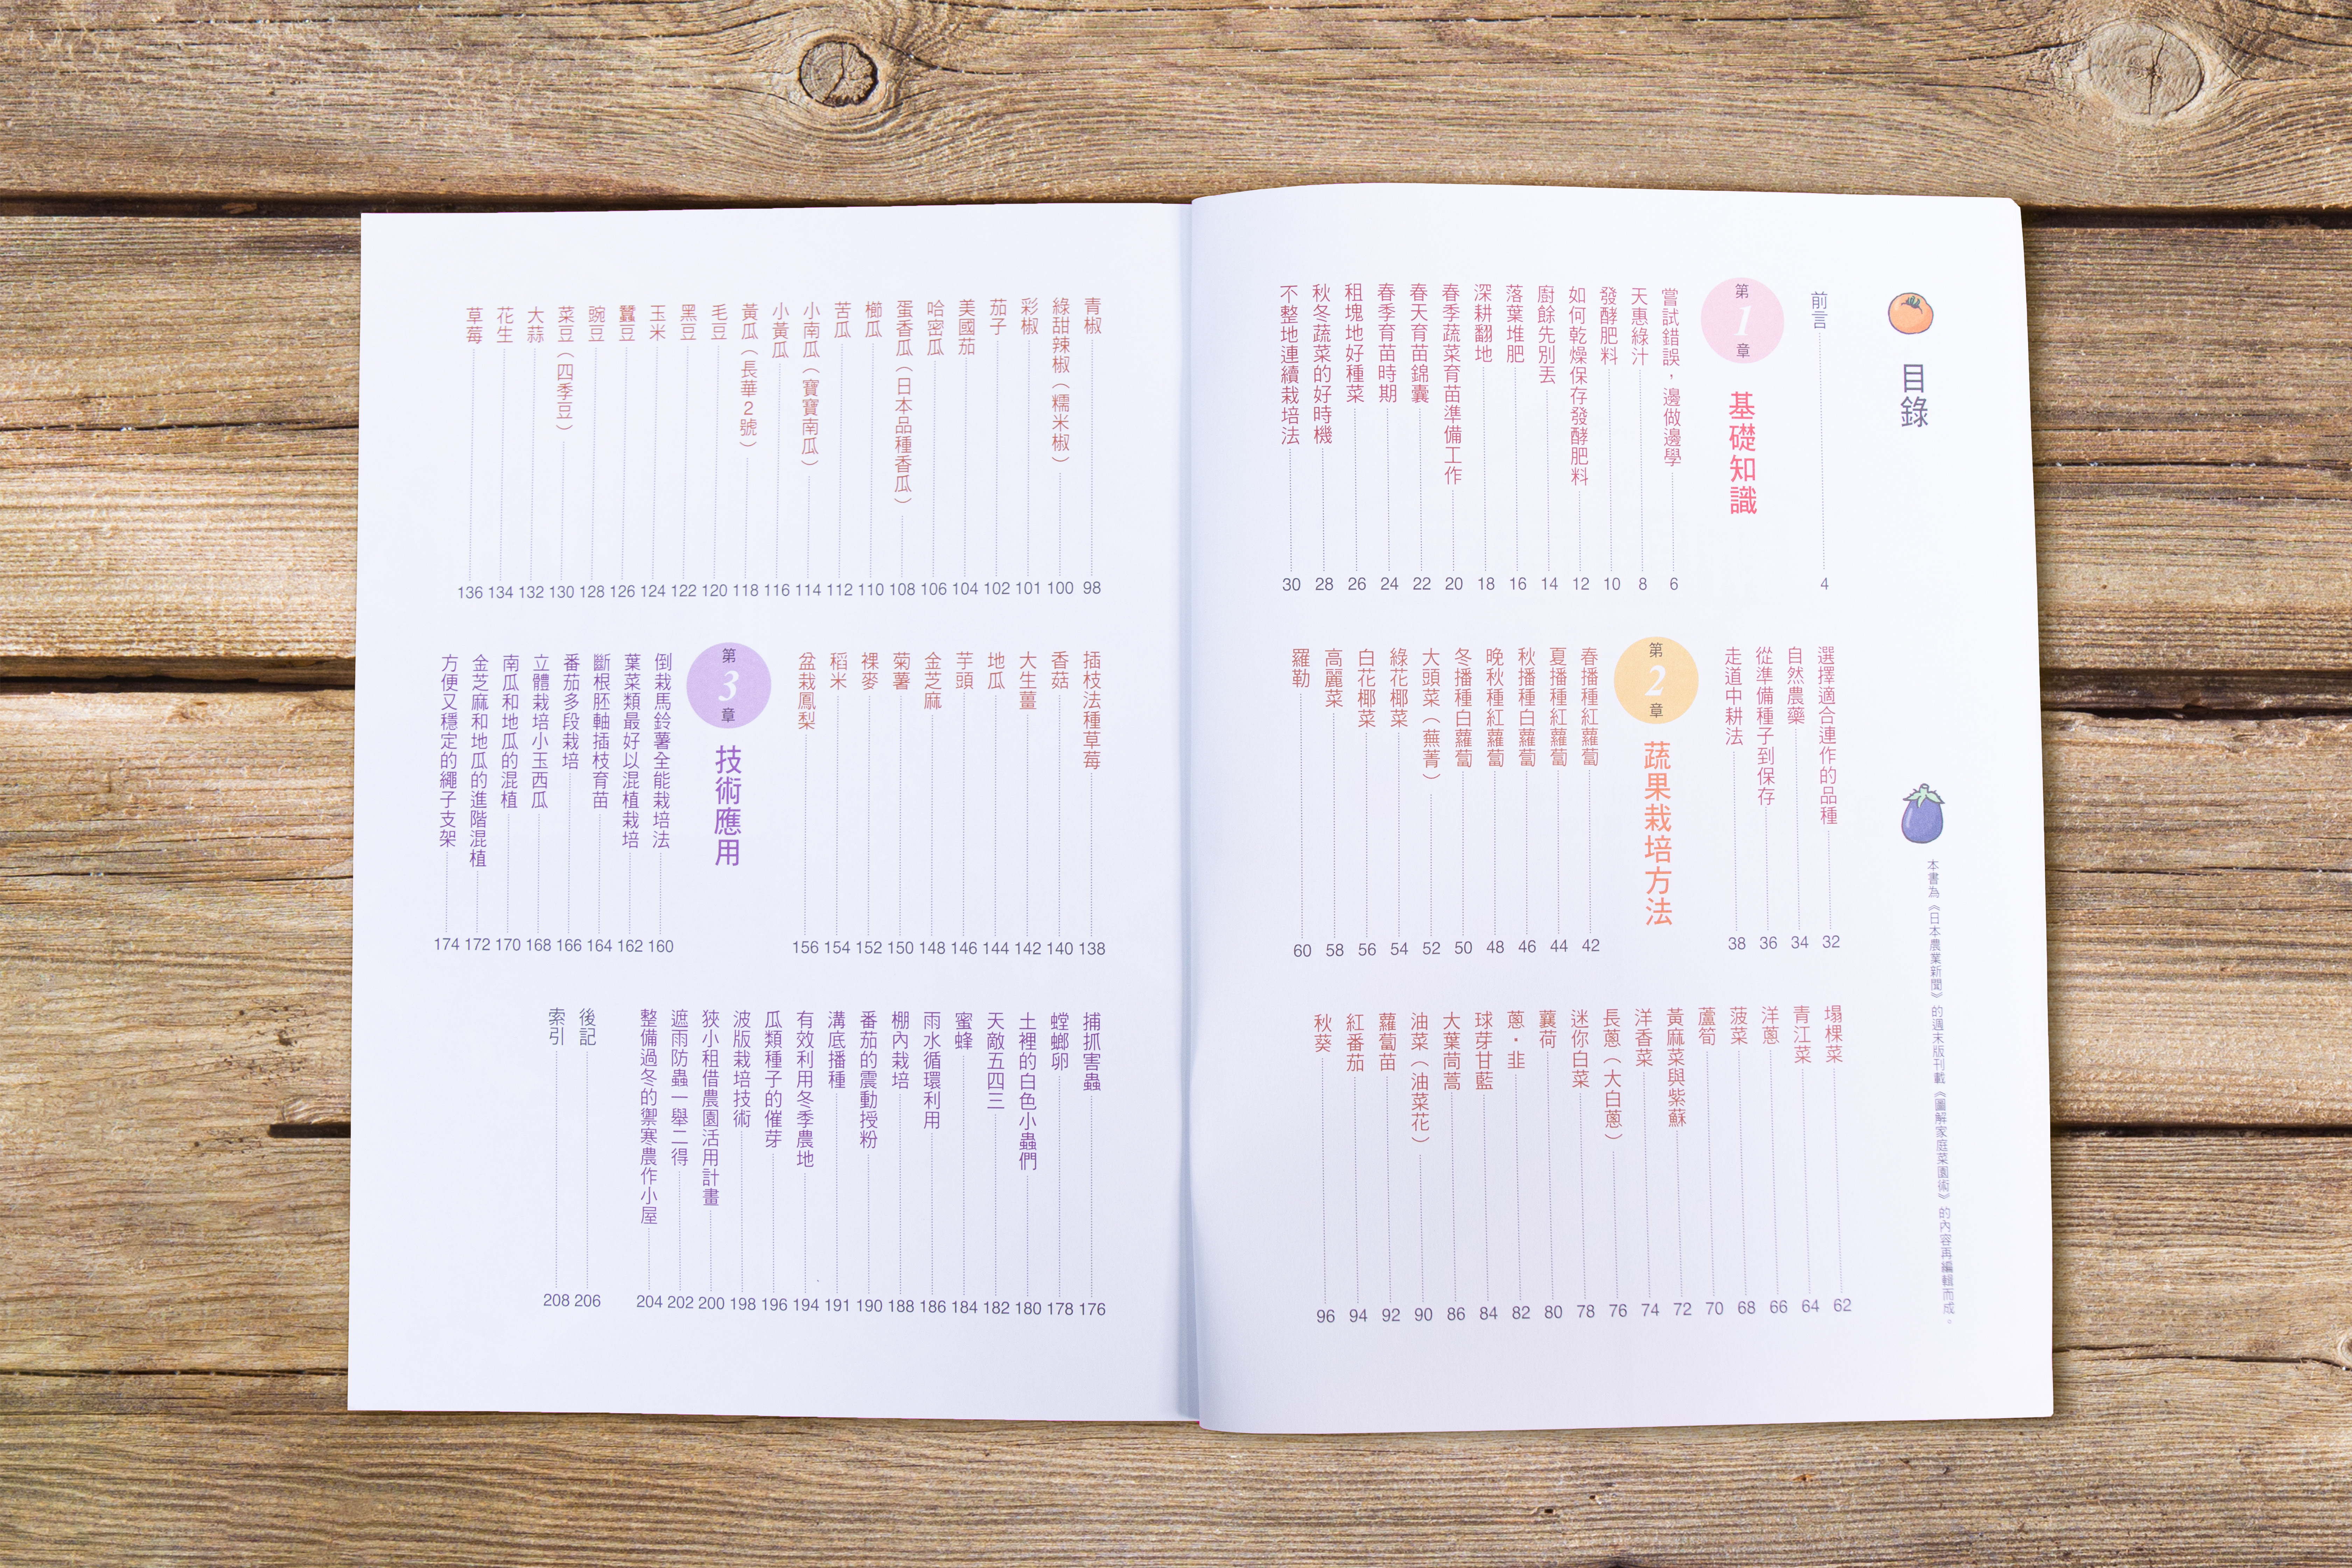 目錄
本書為《日本農業新聞》的週末版刊載《圖解家庭菜園術》的內容再編輯而成。
前言 4
第1章 基礎知識
嘗試錯誤，邊做邊學 6
天惠綠汁 8
發酵肥料 10
如何乾燥保存發酵肥料 12
廚餘先別丟 14
落葉堆肥 16
深耕翻地 18
春季蔬菜育苗準備工作 20
春天育苗錦囊 22
春季育苗時期 24
租塊地好種菜 26
秋冬蔬菜的好時機 28
不整地連續栽培法 30
選擇適合連作的品種 32
自然農藥 34
從準備種子到保存 36
走道中耕法 38
第2章 蔬果栽培方法
春播種紅蘿蔔 42
夏播種紅蘿蔔 44
秋播種白蘿蔔 46
晚秋種紅蘿蔔 48
冬播種白蘿蔔 50
大頭菜（蕪菁） 52
綠花椰菜 54
白花椰菜 56
高麗菜 58
羅勒 60
塌棵菜 62
青江菜 64
洋蔥 66
菠菜 68
蘆筍 70
黃麻菜與紫蘇 72
洋香菜 74
長蔥（大白蔥） 76
迷你白菜 78
蘘荷 80
蔥・韭 82
球芽甘藍 84
大葉茼蒿 86
油菜（油菜花） 90
蘿蔔苗 92
紅番茄 94
秋葵 96
青椒 98
綠甜辣椒（糯米椒） 100
彩椒 101
茄子 102
美國茄 104
哈密瓜 106
蛋香瓜（日本品種香瓜） 108
櫛瓜 110
苦瓜 112
小南瓜（寶寶南瓜） 114
小黃瓜 116
黃瓜（長華2號） 118
毛豆 120
黑豆 122
玉米 124
蠶豆 126
豌豆 128
菜豆（四季豆） 130
大蒜 132
花生 134
草莓 136
插枝法種草莓 138
香菇 140
大生薑 142
地瓜 144
芋頭 146
金芝麻 148
菊薯 150
裸麥 152
稻米 154
盆栽鳳梨 156
第3章 技術應用
倒栽馬鈴薯全能栽培法 160
葉菜類最好以混植栽培 162
斷根胚軸插枝育苗 164
番茄多段栽培 166
立體栽培小玉西瓜 168
南瓜和地瓜的混植 170
金芝麻和地瓜的進階混植 172
方便又穩定的繩子支架 174
捕抓害蟲 176
螳螂卵 178
土裡的白色小蟲們 180
天敵五四三 182
蜜蜂 184
雨水循環利用 186
棚內栽培 188
番茄的震動授粉 190
溝底播種 191
有效利用冬季農地 194
瓜類種子的催芽 196
波版栽培技術 198
狹小租借農園活用計畫 200
遮雨防蟲一舉二得 202
整備過冬的禦寒農作小屋 204
後記 206
索引 208